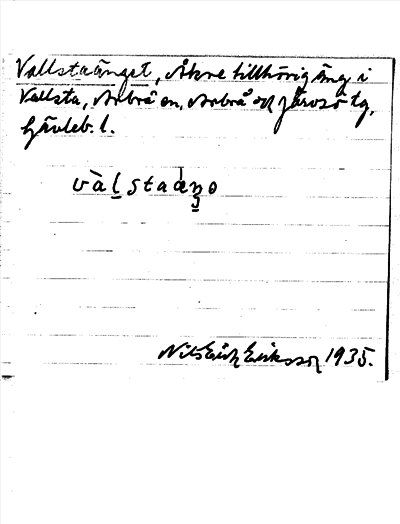 Vallstaänget, Åkre tillhörig äng i
Vallsta, Arbrå sn, Arbrå och Järvsö tg,
Gävleb. l.
vàl̠staáŋo
Nils Erik Eriksson 1935.